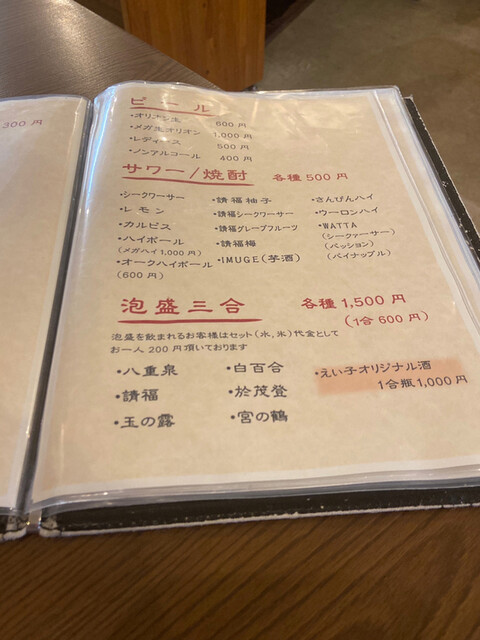 300 円
ビール
・オリオン生 600 円
・メガ生オリオン 1,000 円
・レディース 500 円
・ノンアルコール 400 円
サワー/焼酎 各種 500 円
・シークワーサー
・レモン
・カルピス
・ハイボール
(メガハイ 1,000 円)
・オークハイボール
(600 円)
・請福柚子
・請福シークワーサー
・請福グレープフルーツ
・請福梅
・IMUGE(芋酒)
・さんぴんハイ
・ウーロンハイ
・WATTA
(シークァーサー)
(パッション)
(パイナップル)
泡盛三合 各種 1,500 円
(1合 600 円)
泡盛を飲まれるお客様はセット(水,氷)代金として
お一人 200 円頂いております
・八重泉
・請福
・玉の露
・白百合
・於茂登
・宮の鶴
・えい子オリジナル酒
1合瓶 1,000 円